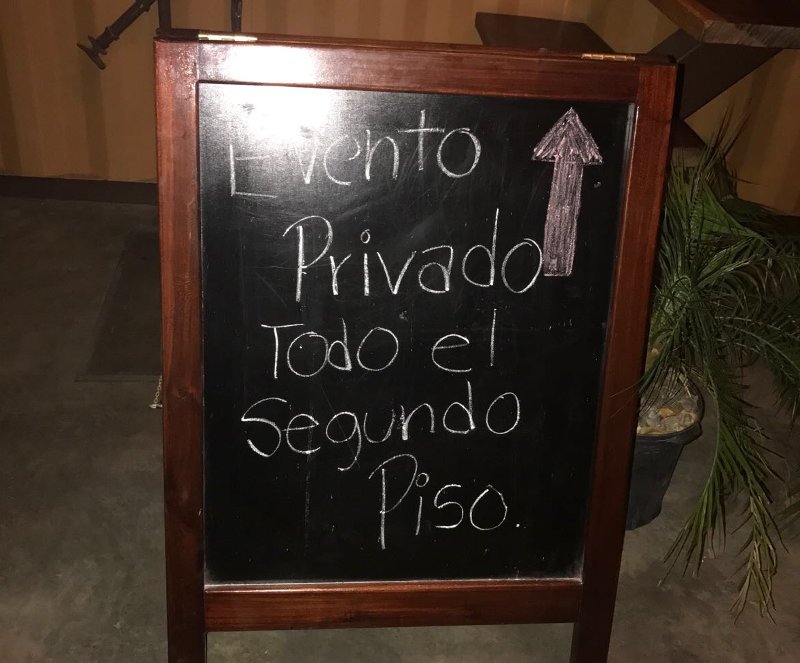 Evento
Privado
Todo el
Segundo
Piso.